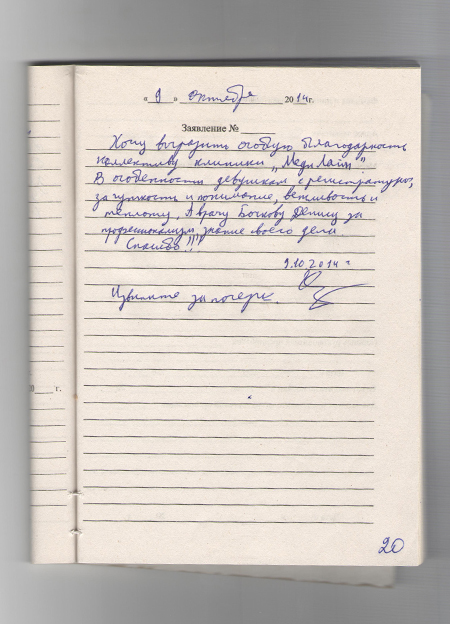 « 9 » октября 2014г.
Заявление №
Хочу выразить особую благодарность
коллективу клиники „МедиЛайн".
В особенности девушкам с регистратуры,
за чуткость и понимание, вежливость и
теплоту, А врачу Бочкову Денису за
профессионализм, знание своего дела
Спасибо !!!
9.10.2014 г
Извините за почерк.
0 г.
20